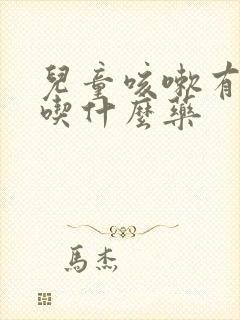 兒童咳嗽有
喫什麼藥
馬杰